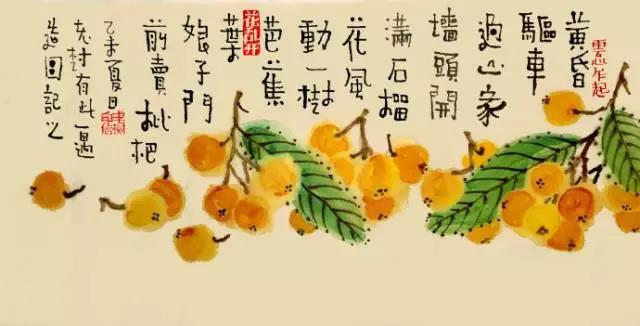 黄昏
驅車
過山家
墙頭開
滿石榴
花風
動一树
芭蕉
葉
娘子門
前賣枇杷
乙未夏日
老树有此遇
造圖記之
花乱开